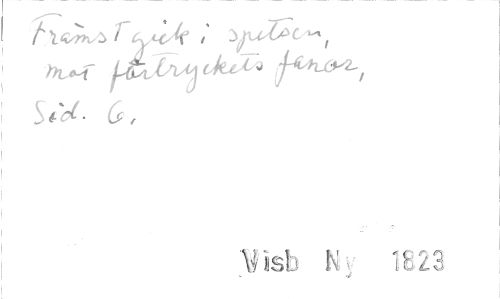 Främst gick i spetsen,
mot förtryckets fanor,
Sid. 6,
Visb Ny 1823